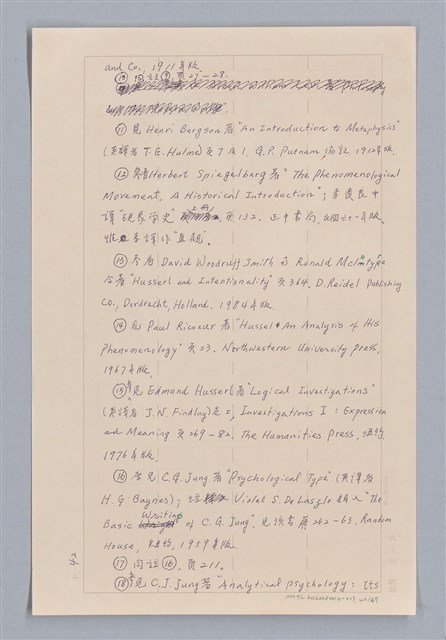 and Co., 1911年版.
⑩ 同註⑨, 頁27—28.
⑪ 見 Henri Bergson 著 "An Introduction to Metaphysics"
(英譯者 T. E. Hulme) 頁 7 及 1. G.P. Putnam 1912年版.
⑫ 參看 Herbert Spiegelberg 著 "The Phenomenological
Movement, A Historical Introduction"; 李貴良中
譯"現象學史" 頁 152. 正中書局, 年版.
譯作"直觀".
⑬ 參看 David Woodruff Smith 與 Ronald McIntyre
合著 "Husserl and Intentionality" 頁 364. D. Reidel Publishing
Co., Dordrecht, Holland. 1984年版
⑭ 見 Paul Ricoeur 著 "Hussel An Analysis of His
Phenomenology" 頁 23. Northwestern University press,
1967年版.
⑮ 參見 Edmund Husserl 著 "Logical Investigations"
(英譯者 J. N. Findlay) Investigations I : Expression
and Meaning 頁 269—82. The Humanities Press, 紐約,
1976年版.
⑯ 參見 C. G. Jung 著 "Psychological Type" (英譯者
H. G. Baynes); Violet S. De Laszlo 編入 "The
Basic Writing of C. G. Jung". 見該書頁 262—63. Random
House, 紐約, 1959年版.
⑰ 同註⑯, 頁 211.
⑱ 參見 C. J. Jung 著 "Analytical psychology : Its
42